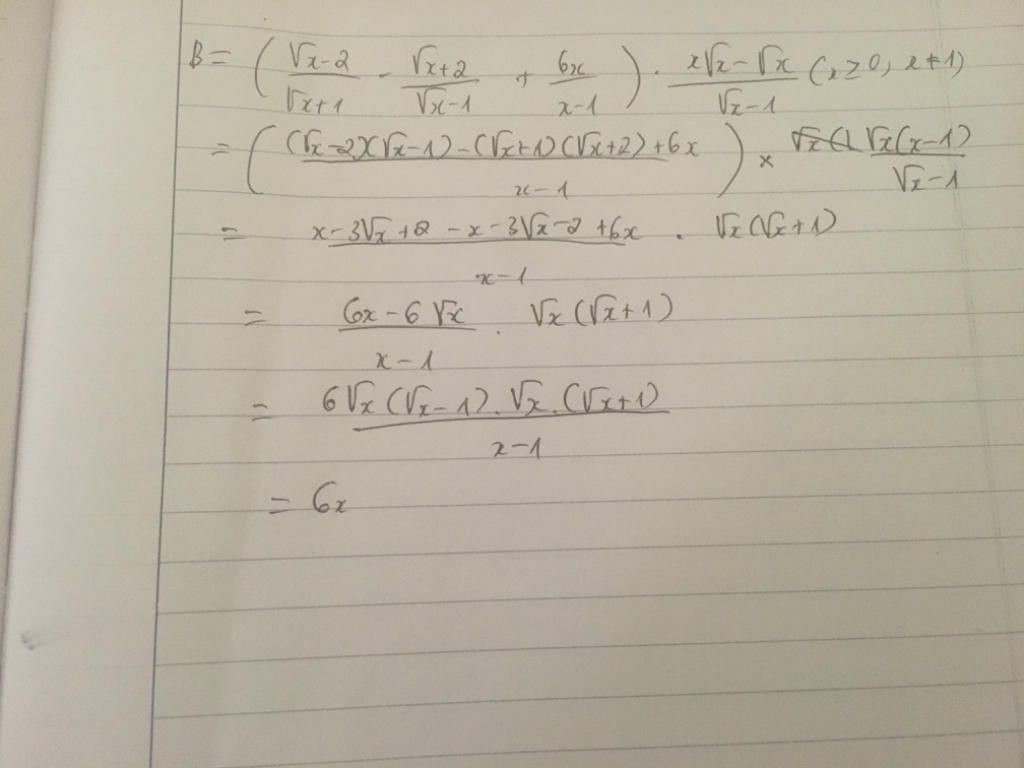 B = ( (√x-2)/(√x+1) - (√x+2)/(√x-1) + 6x/(x-1) ) . (x√x-√x)/(√x-1) (x≥0, x≠1)
= ( ((√x-2)(√x-1)-(√x+1)(√x+2)+6x)/(x-1) ) × √x(x-1)/(√x-1)
= (x-3√x+2-x-3√x-2+6x)/(x-1) . √x(√x+1)
= (6x-6√x)/(x-1) . √x(√x+1)
= (6√x(√x-1).√x.(√x+1))/(x-1)
= 6x